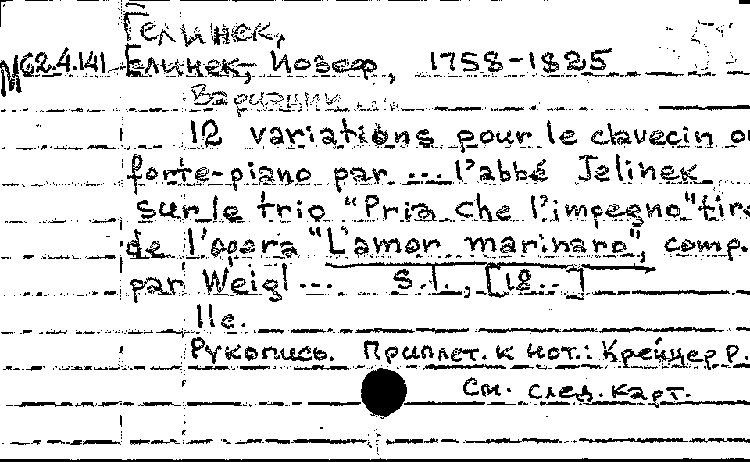 Гелинек,
М62.4.141 Елинек, Иозеф, 1758-1825
Вариации ...
12 variations pour le clavecin ou
forte-piano par ... l'abbé Jelinek
sur le trio "Pria che l'impegno" tiré
de l'opera "L'amor marinaro", comp.
par Weigl ... S.l., [18..]
11c.
Рукопись. Приплет. к нот.: Крейцер Р.
См. след. карт.